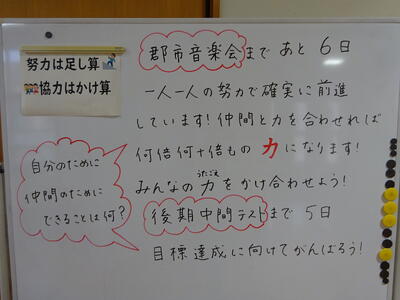 努力は足し算
協力はかけ算
郡市音楽会まで あと 6日
一人一人の努力で確実に前進
しています！仲間と力を合わせれば
何倍何十倍もの 力 になります！
みんなの力をかけ合わせよう！
うたごえ
後期中間テストまで 5日
目標達成に向けてがんばろう！
自分のために
仲間のために
できることは何？